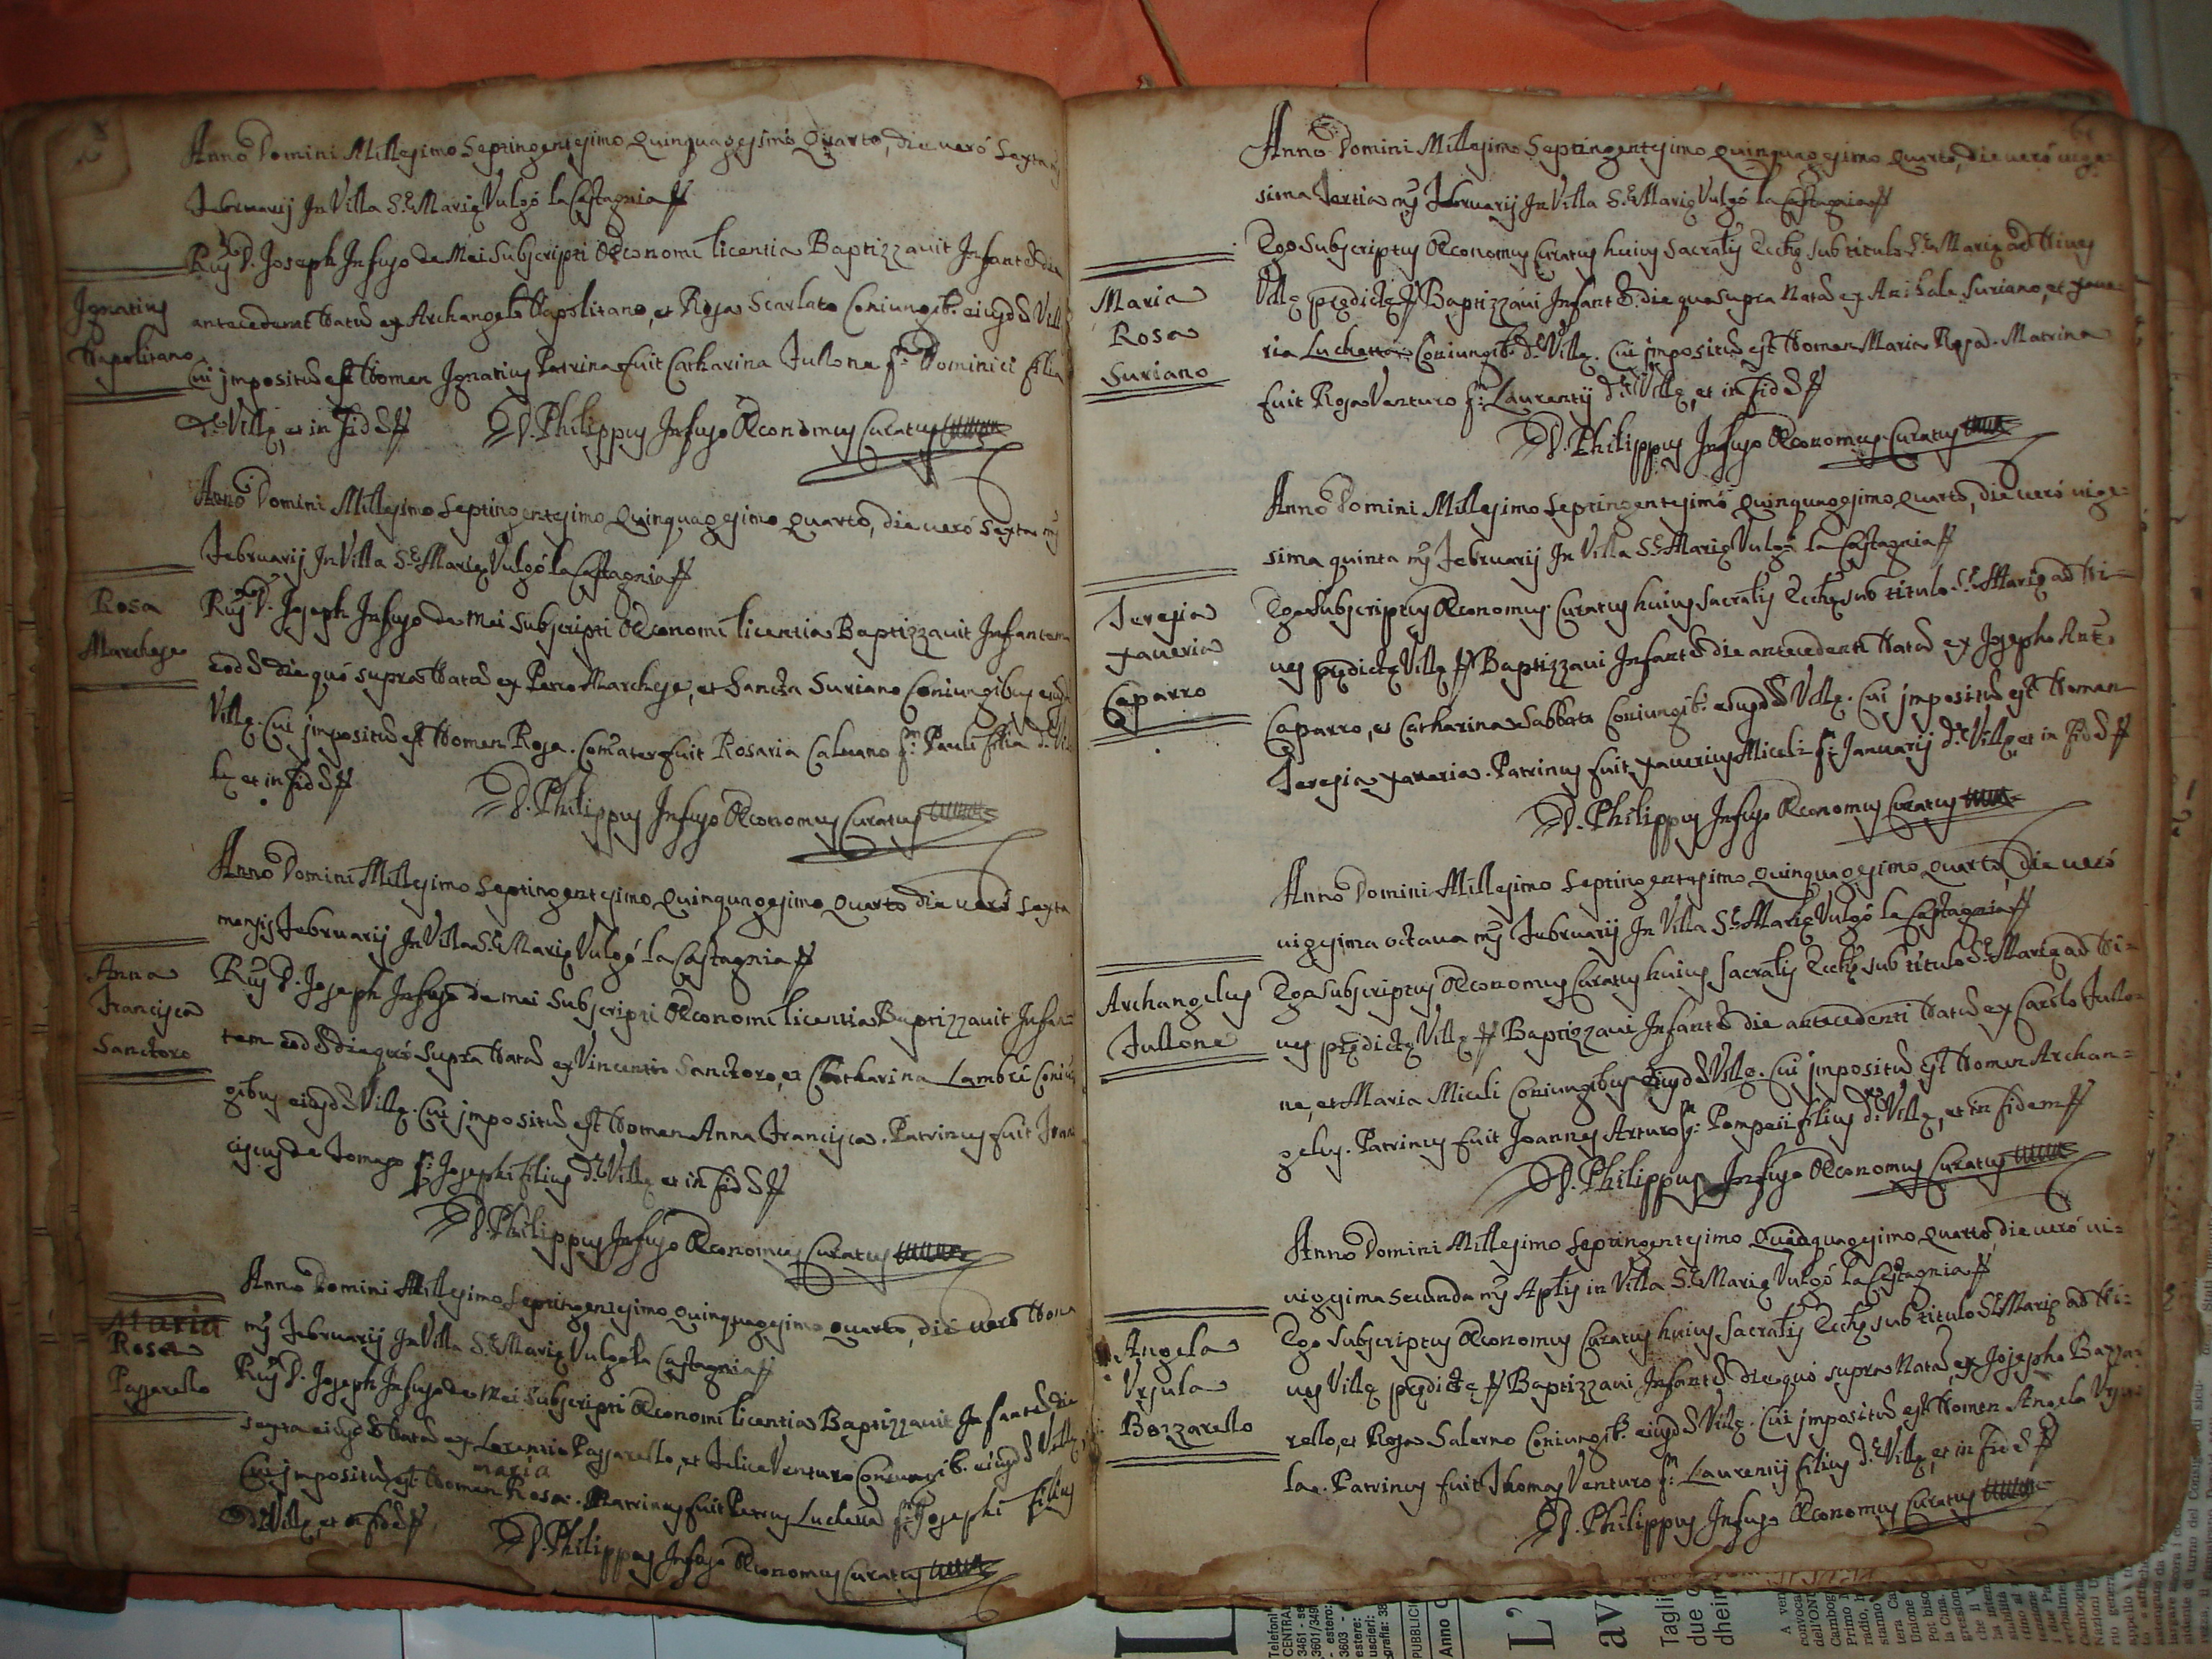 Anno Domini Millesimo Septingentesimo Quinquagesimo Quarto, die verò Sexta
Februarij In Villa S.e Marię Vulgò la Castagnia
Ignatius
Napolitano
R.us D. Joseph Infuso de mei Subscripti Œconomi licentia Baptizzavit Infant. die
antecedent Natū ex Archangelo Napolitano, et Rosa Scarlato Coniungib. eiusd Vill
Cui impositū est Nomen Ignatius Patrina fuit Catharina Fullone f.m Dominici filia
d.e Villę, et in fid
D. Philippus Infuso Œconomus Curatus
Anno Domini Millesimo Septingentesimo Quinquagesimo Quarto, die verò Sexta m
Februarij In Villa S.e Marię Vulgò la Castagnia
Rosa
Marchese
R.us D. Joseph Infuso de mei Subscripti Œconomi licentia Baptizzavit Infantem
eod die quò supra Natā ex Marchese, et Sancta Suriano Coniungibus eiusd
Villę. Cui impositū est Nomen Rosa. Com̄ater fuit Rosaria Calvano f.m Pauli filia d.e Vil
lę et in fid
D. Philippus Infuso Œconomus Curatus
Anno Domini Millesimo Septingentesimo Quinquagesimo Quarto die verò Sexta
mensis Februarij In Villa S.e Marię Vulgò la Castagnia
Anna
Francisca
Sanctoro
R.us D. Joseph Infuso de mei Subscripti Œconomi licentia Baptizzavit Infan=
tem eod die quò supra Natā ex Vincentio Sanctoro, et Catharina Lambri Coniun
gibus eiusd Villę. Cui impositū est Nomen Anna Francisca. Patrinus fuit Fran
ciscus de Tomaso f.m Josephi filius d.e Villę et in fid
D. Philippus Infuso Œconomus Curatus
Anno Domini Millesimo Septingentesimo Quinquagesimo Quarto, die verò Nona
m Februarij In Villa S.e Marię Vulgò la Castagnia
Maria
Rosa
Passarello
R.us D. Joseph Infuso de mei Subscripti Œconomi licentia Baptizzavit Infant. die
sexta eiusd Natā ex Lorentio Passarello, et Felice Venturo Coniungib. eiusd Villę
maria
Cui impositū est Nomen Rosa. Patrinus fuit Petrus Luchetta f.m Josephi filius
d.e Villę, et in fid
D. Philippus Infuso Œconomus Curatus
Anno Domini Millesimo Septingentesimo Quinquagesimo Quarto, die verò vige=
sima tertia m Februarij In Villa S.e Marię Vulgò la Castagnia
Maria
Rosa
Suriano
Ego Subscriptus Œconomus Curatus huius Sacralis Ecclę sub titulo S.e Marię ad Nives
Villę prędictę Baptizzavi Infant. die quo supra Natā ex Anibale Suriano, et Xave
ria Luchetta Coniungib. d.e Villę. Cui impositū est Nomen Maria Rosa. Matrina
fuit Rosa Venturo f.m Laurentij d.e Villę, et in fid
D. Philippus Infuso Œconomus Curatus
Anno Domini Millesimo Septingentesimo Quinquagesimo Quarto, die verò vige=
sima quinta m Februarij In Villa S.e Marię Vulgò la Castagnia
Teresia
Xaveria
Caparro
Ego Subscriptus Œconomus Curatus huius Sacralis Ecclę sub titulo S.e Marię ad Ni=
ves prędictę Villę Baptizzavi Infant. die antecedenti Natā ex Josepho Ant.o
Caparro, et Catharina Sabbato Coniungib. eiusd Villę. Cui impositū est Nomen
Teresia Xaveria. Patrinus fuit Xaverius Miceli f.m Januarij d.e Villę et in fid
D. Philippus Infuso Œconomus Curatus
Anno Domini Millesimo Septingentesimo Quinquagesimo Quarto, die verò
vigesima octava m Februarij In Villa S.e Marię Vulgò la Castagnia
Archangelus
Fullone
Ego Subscriptus Œconomus Curatus huius Sacralis Ecclę sub titulo S.e Marię ad Ni=
ves prędictę Villę Baptizzavi Infant. die antecedenti Natū ex Carolo Fullo=
ne, et Maria Miceli Coniungibus eiusd Villę. Cui impositū est Nomen Archan=
gelus. Patrinus fuit Joannes Arturo f.m Pompeii filius d.e Villę, et in fidem
D. Philippus Infuso Œconomus Curatus
Anno Domini Millesimo Septingentesimo Quinquagesimo Quarto, die verò vi=
vigesima secunda m Aplis in Villa S.e Marię Vulgò la Castagnia
Angela
Ursula
Bozzarello
Ego Subscriptus Œconomus Curatus huius Sacralis Ecclę sub titulo S.e Marię ad Ni=
ves Villę prędictę Baptizzavi Infant. die quò supra Natā ex Josepho Bozza=
rello, et Rosa Salerno Coniungib. eiusd Villę. Cui impositū est Nomen Angela Ursu
la. Patrinus fuit Thomas Venturo f.m Laurentij filius d.e Villę, et in fid
D. Philippus Infuso Œconomus Curatus